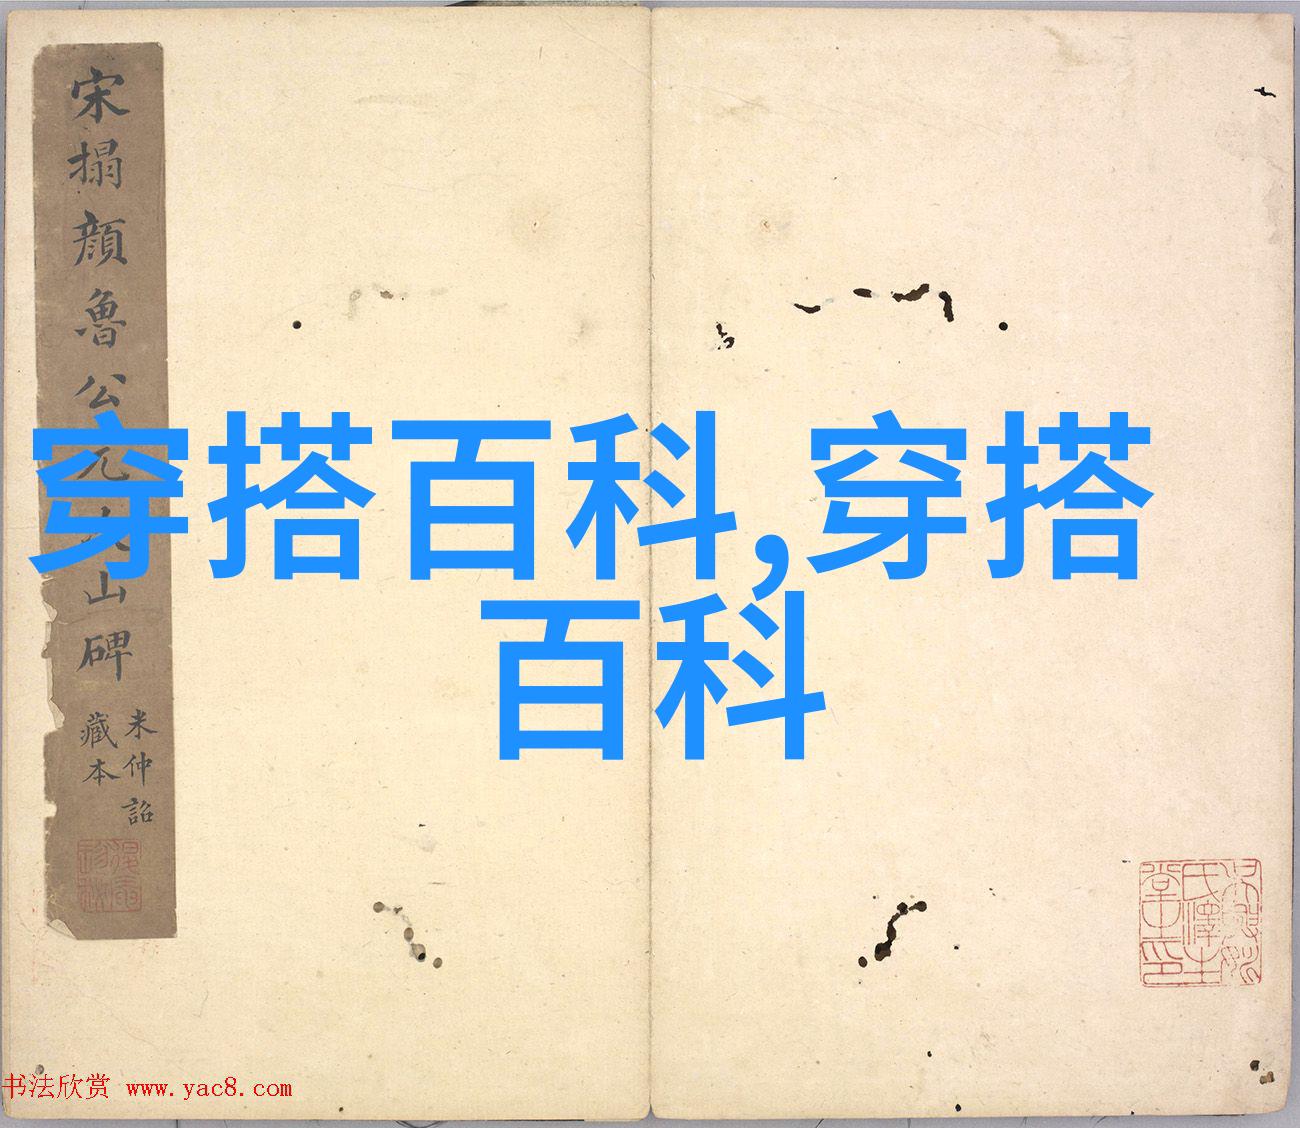 宋搨顔魯公元次山碑
米仲詔
藏本
穿搭百科,穿搭
百科
书法欣赏 www.yac8.com